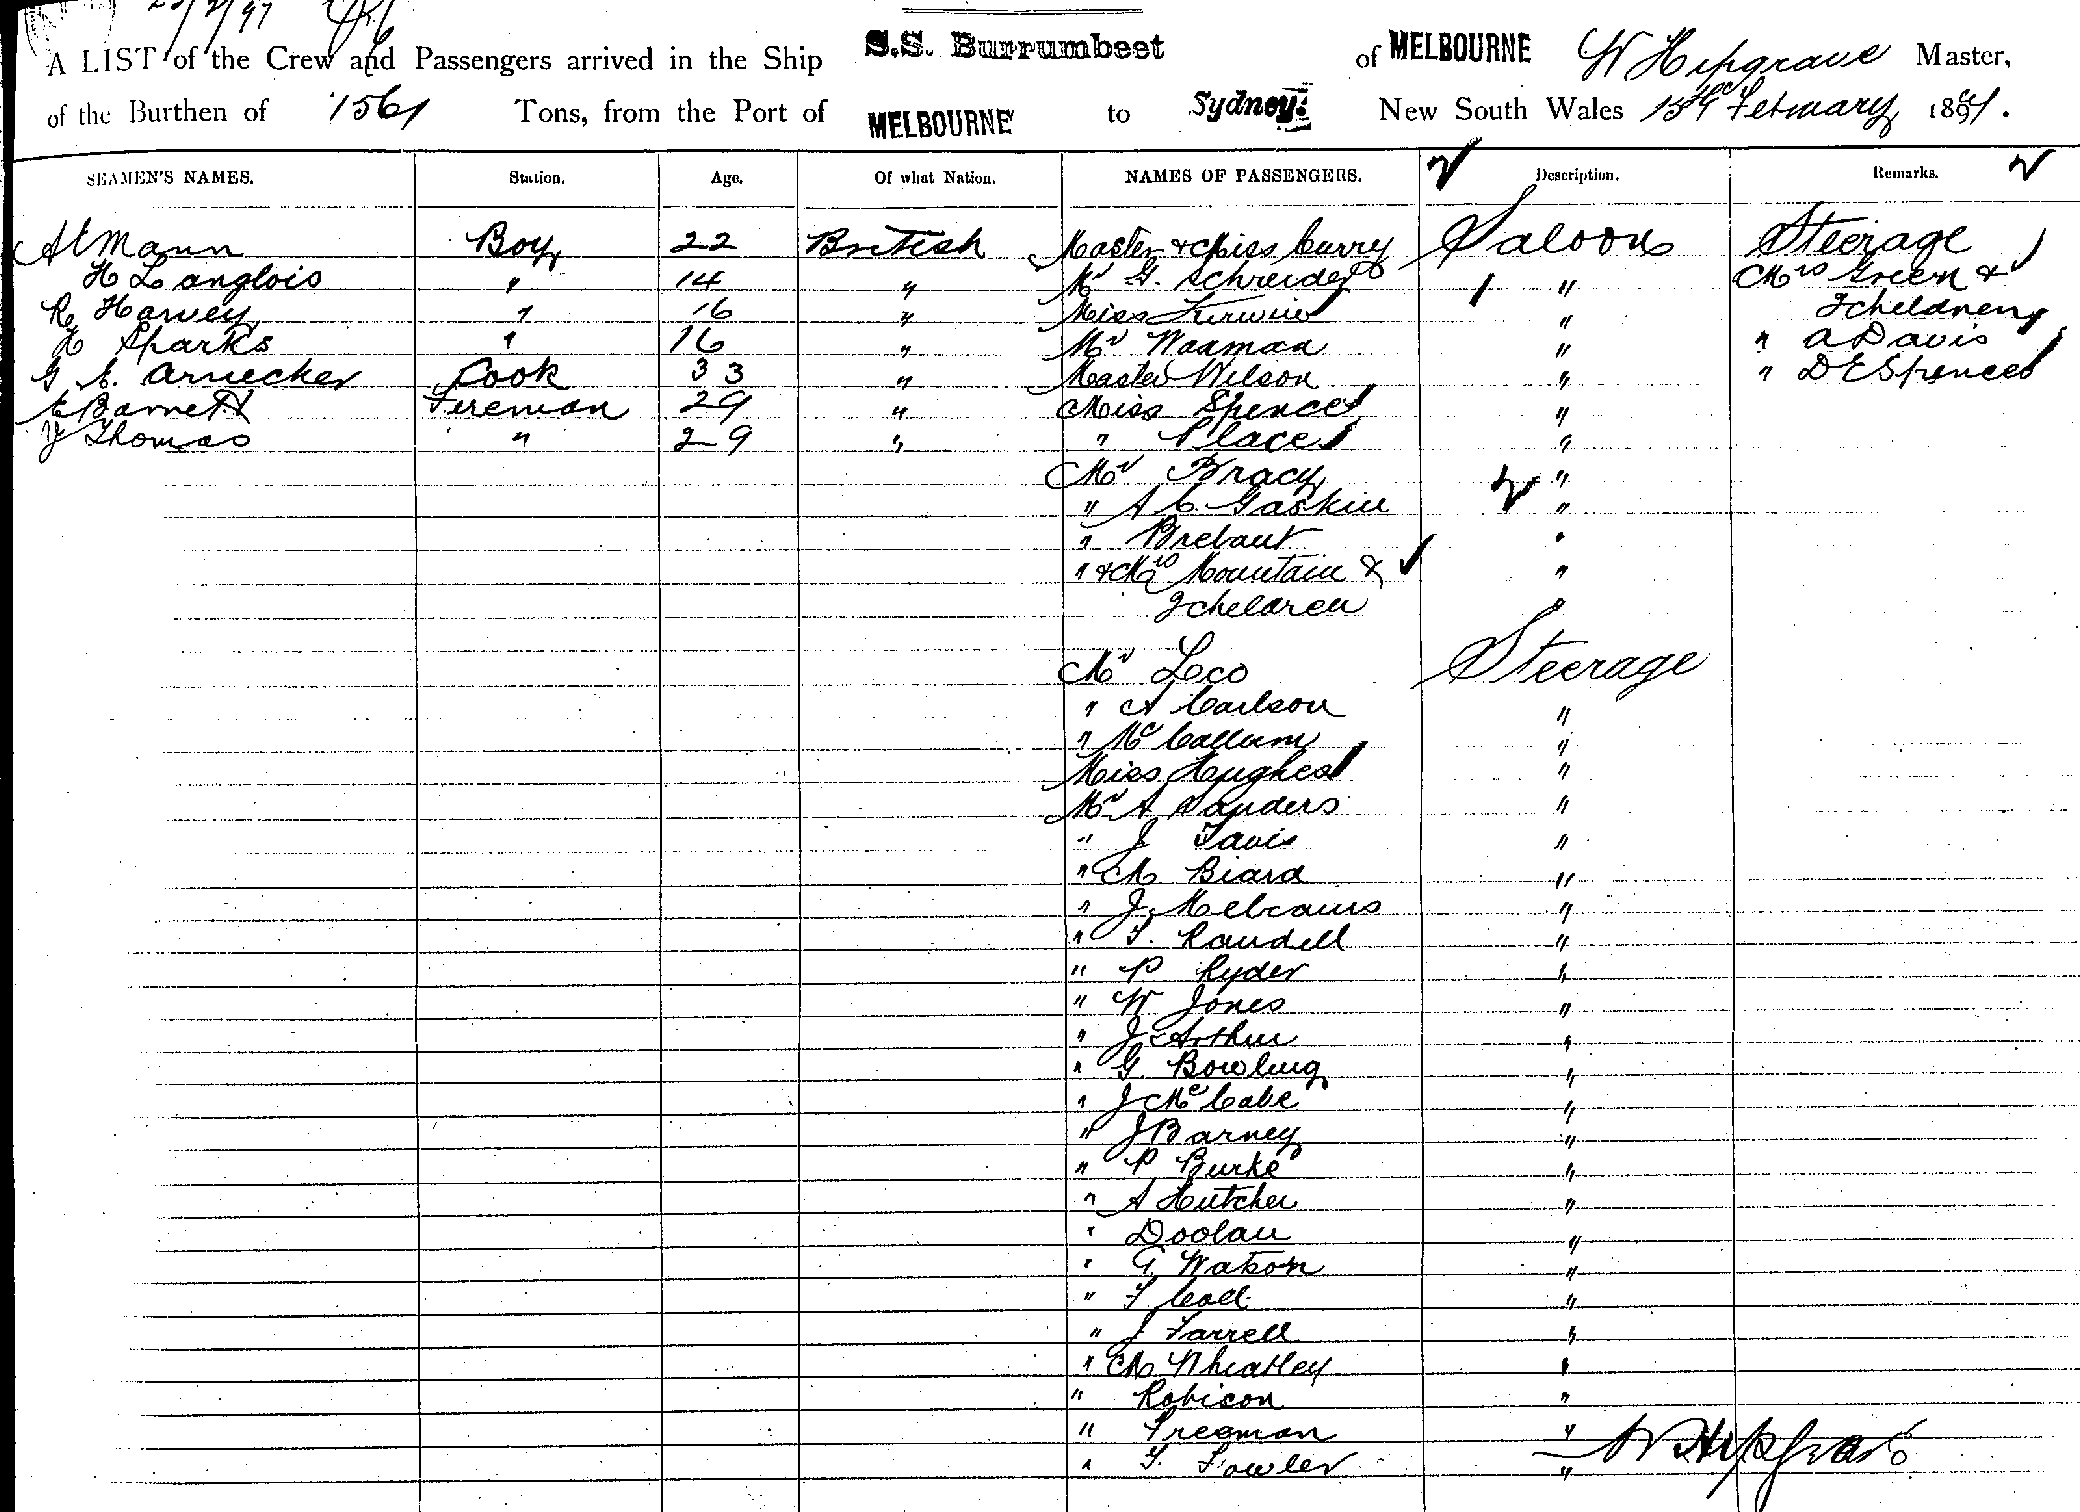 A LIST of the Crew and Passengers arrived in the Ship S.S. Burrumbeet of MELBOURNE W Hipgrave Master,
of the Burthen of 1561 Tons, from the Port of MELBOURNE to Sydney: New South Wales February 1897.
SEAMEN'S NAMES. Station. Age. Of what Nation. NAMES OF PASSENGERS. Description. Remarks.
Mann Boy 22 British Master & Miss Curry Saloon Steerage
H Langlois " 14 " Mr G. Schreider " Mrs Green &
R Harvey " 16 " Miss Kirwin "
H Sparks " 16 " Mr Waaman " " A Davis
G A. Arnecker Cook 33 " Master Wilson " " D E Spence
Barnett Fireman 29 " Miss Spence "
J Thomas " 29 " " Place "
Mr Bracy "
" A C Gaskin "
" Brebaut "
" & Mrs Mountain & "
children "
Mr Leco Steerage
" A Carlson "
" Mc Callum "
Miss Hughes "
Mr A Sanders "
" J Tavis "
" M Biard "
" J "
" T. Randell "
" P Ryder "
" W Jones "
" J Arthur "
" G Bowling "
" J McCabe "
" J Barney "
" P Burke "
" A Hutcher "
" Doolan "
" G Watson "
" F Coll "
" J Farrell "
" M Wheatley "
" Robison "
" Freeman "
" T. Fowler "
W Hipgrave